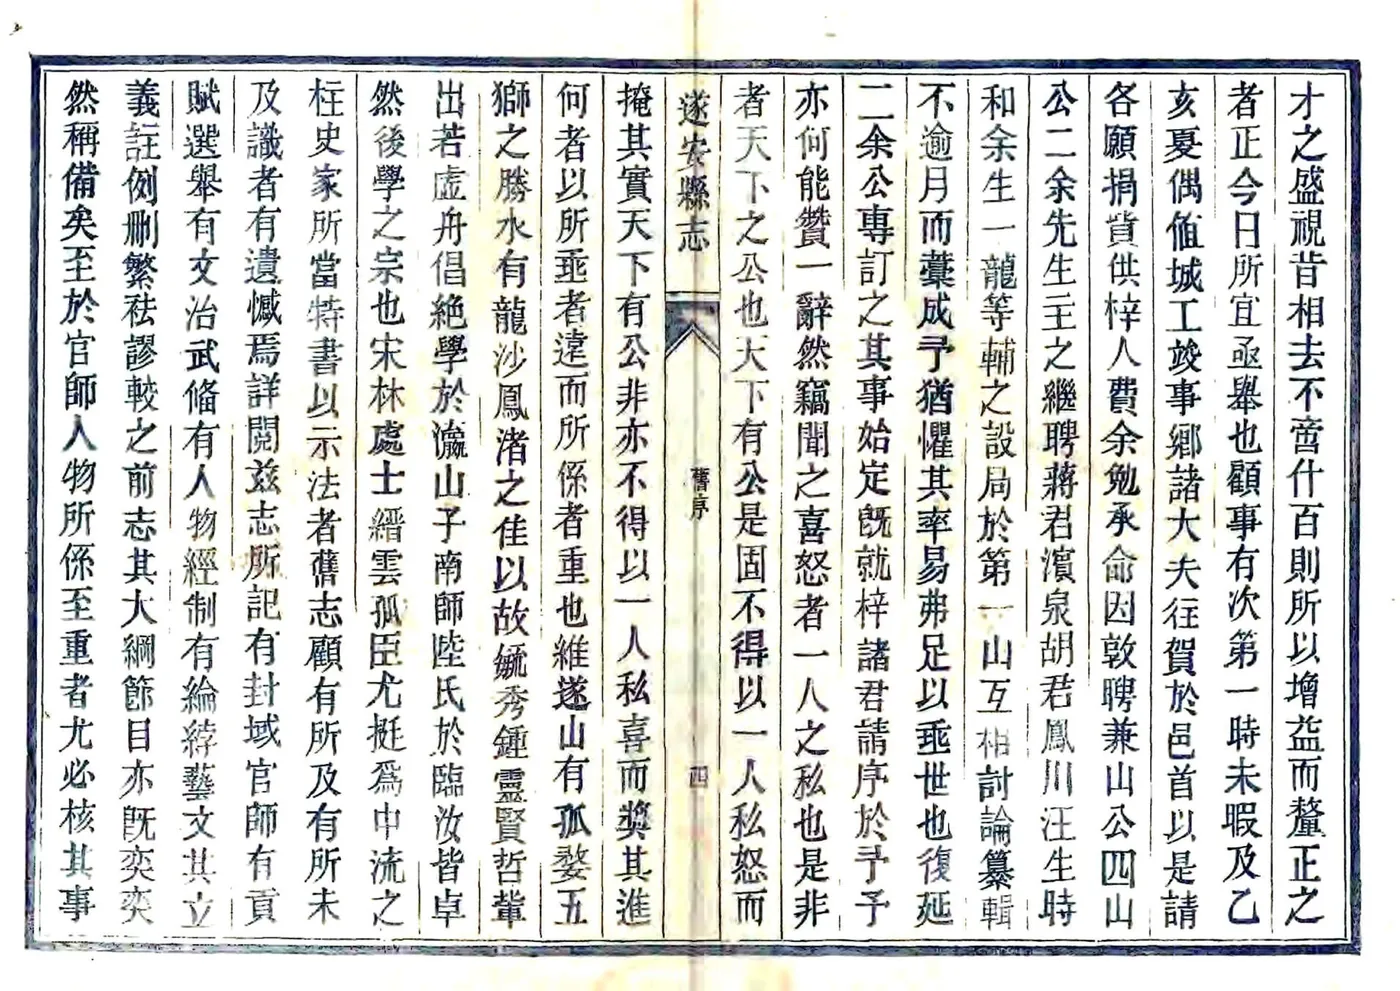 才之盛視昔相去不啻什百則所以增益而釐正之
者正今日所宜亟舉也顧事有次第一時未暇及乙
亥夏偶脩城工竣事鄉諸大夫往賀於邑首以是請
各願捐貲供梓人費余勉承命因敦聘兼山公四山
公二余先生主之繼聘蔣君濱泉胡君鳳川汪生時
和余生一龍等輔之設局於第一山互相討論纂輯
不逾月而藁成予猶懼其率易弗足以垂世也復延
二余公專訂之其事始定旣就梓諸君請序於予予
亦何能贊一辭然竊聞之喜怒者一人之私也是非
者天下之公也天下有公是固不得以一人私怒而
遂安縣志
舊序
四
掩其實天下有公非亦不得以一人私喜而獎其進
何者以所垂者遠而所係者重也維遂山有孤婺五
獅之勝水有龍沙鳳渚之佳以故毓秀鍾靈賢哲輩
出若虛舟倡絶學於瀛山子南師陸氏於臨汝皆卓
然後學之宗也宋林處士縉雲孤臣尤挺爲中流之
柱史家所當特書以示法者舊志顧有所及有所未
及識者有遺憾焉詳閱兹志所記有封域官師有貢
賦選舉有文治武備有人物經制有綸綍藝文其立
義註例刪繁袪謬較之前志其大綱節目亦旣奕奕
然稱備矣至於官師人物所係至重者尤必核其事